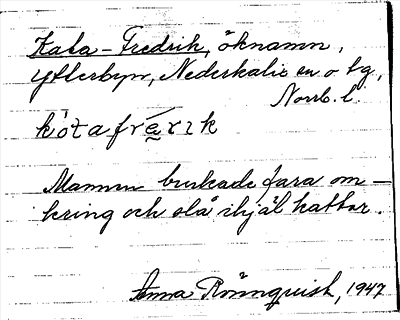 Kata-Fredrik, öknamn,
Ytterbyn, Nederkalix sn o tg,
Norrb. l.
kòtafrɛ́rɪk
Mannen brukade fara om-
kring och slå ihjäl kattor.
Anna Rönnquist, 1947